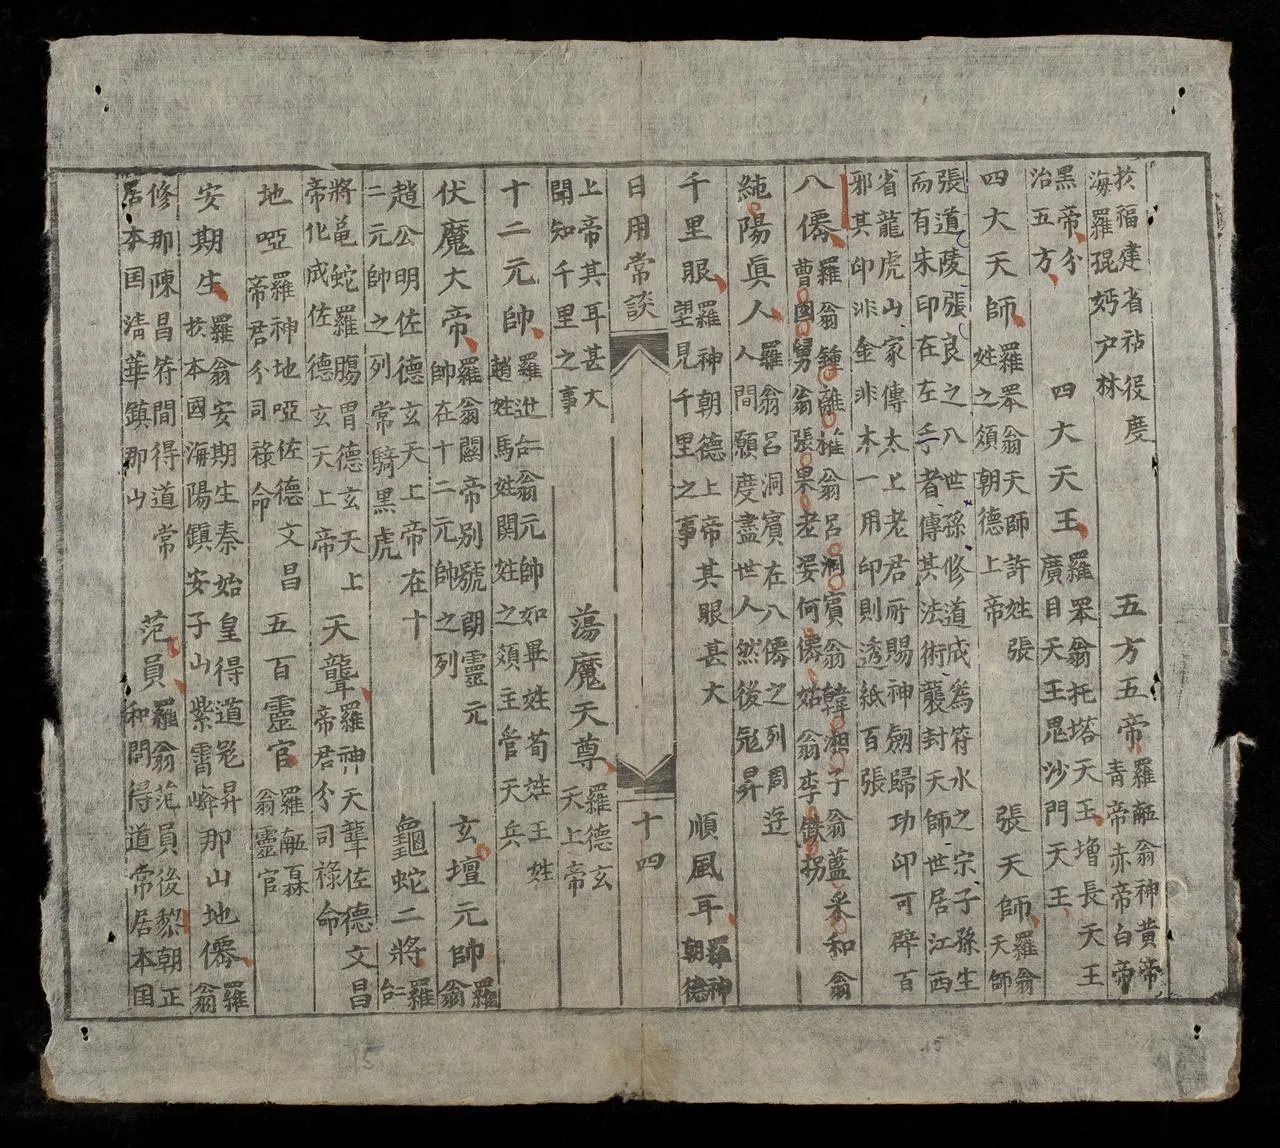 扵福建省站役度
海羅琨媽户林
五方五帝
羅𠄼翁神黄帝
青帝赤帝白帝
黑帝分
治五方
四大天王
羅罙翁托塔天王增長天王
廣目天王毘沙門天王
四大天師
羅罙翁天師許姓張
姓之類朝德上帝
張天師
羅翁
天師
張道陵張良之八世孫修道成爲符水之宗子孫生
而有朱印在左手者傳其法術襲封天師世居江西
省龍虎山家傳太上老君所賜神劔歸功印可辟百
邪其印非金非木一用印則透紙百張
八僊
羅翁鍾離權翁呂洞賓翁韓湘子翁藍采和翁
曹國舅翁張果老妥何僊姑翁李鐵拐
純陽眞人
羅翁呂洞賓在八僊之列周逰
人間願度盡世人然後𣌀昇
千里眼
羅神朝德上帝其眼甚大
望見千里之事
順風耳
羅神
朝德
日用常談
十四
上帝其耳甚大
聞知千里之事
蕩魔天尊
羅德玄
天上帝
十二元帥
羅𨑮𠄩翁元帥如畢姓荀姓王姓
趙姓馬姓関姓之類主管天兵
伏魔大帝
羅翁關帝别號朗靈元
帥在十二元帥之列
玄壇元帥
羅
翁
趙公明佐德玄天上帝在十
二元帥之列常騎黑虎
龜蛇二將
羅
𠄩
將黽蛇羅腸胃德玄天上
帝化成佐德玄天上帝
天聾
羅神天聾佐德文昌
帝君分司禄命
地啞
羅神地啞佐德文昌
帝君分司祿命
五百靈官
羅𠄼𤾓
翁靈官
安期生
羅翁安期生秦始皇得道𣌀昇那山地僊
扵本國海陽鎮安子山紫霄峰
羅
翁
修那陳昌符間得道常
居本国清華鎮那山
范員
羅翁范員後黎朝正
和間得道常居本国